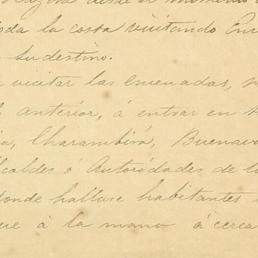 desde el momento
oda la costa visitando
su destino.
visitar las ensenadas,
anterior, á entrar en
Charambirá, Buenav
caldes ó Autoridades de l
donde hallase habitantes
á la mano ó cerca